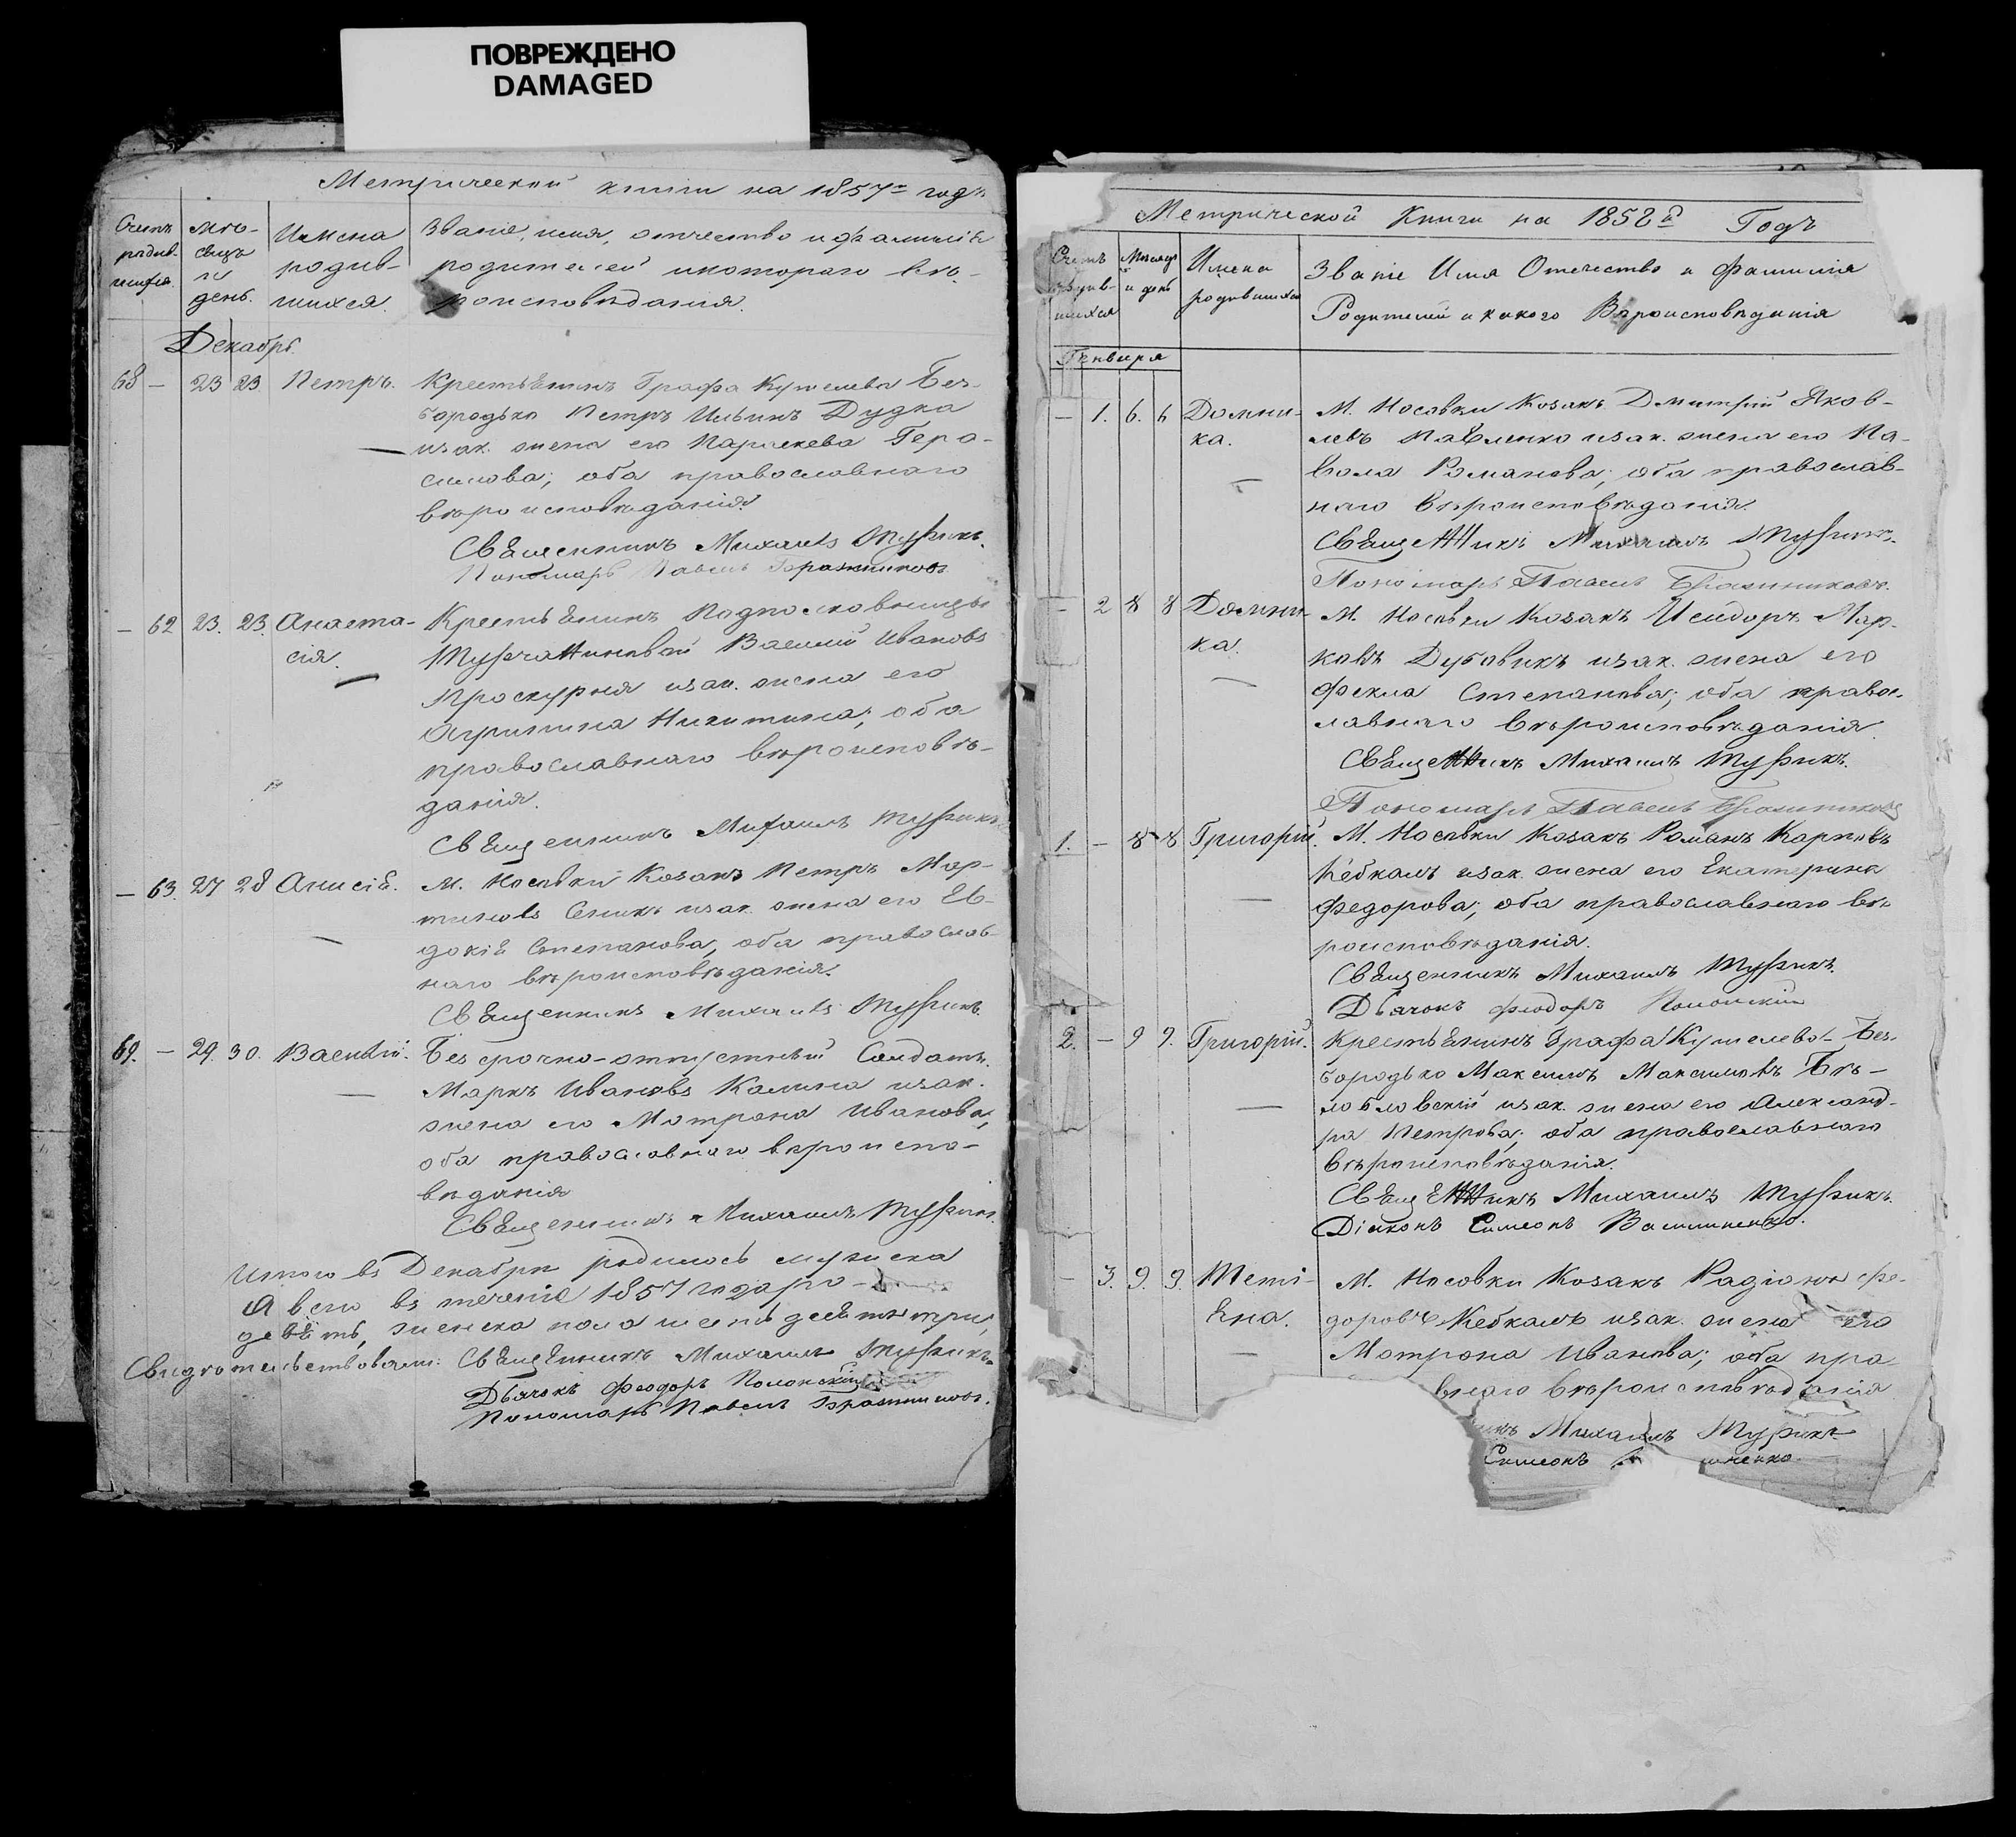 ПОВРЕЖДЕНО
DAMAGED
Метрической книги на 1857й годъ
Счетъ родив-шихся
Мѣ-сяцъ и день.
Имена родив-шихся.
Званіе, имя, отчество и фамилія
родителей и котораго вѣ-
роисповѣданія.
Декабрь.
68 — 23 23 Петръ. Крестьянинъ Графа Кушелева Без-
бородька Петръ Ильинъ Дудка
изак. жена его Параскева Гера-
симова; оба православнаго
вѣроисповѣданія.
Священникъ Михаилъ Музыкъ.
Пономарь Павелъ Бражниковъ
— 62 23. 23. Анаста- Крестьянинъ Подполковницы
сія. Василій Ивановъ
Проскурня изак. жена его
Агрипина Никитина; оба
православнаго вѣроисповѣ-
данія.
Священникъ Михаилъ Музыкъ
— 63. 27 28 Анисія. М. Носовки Козакъ Петръ Мар-
тиновъ Сеникъ изак. жена его Ев-
докія Степанова, оба православ-
наго вѣроисповѣданія.
Священникъ Михаилъ Музыкъ.
69. — 29. 30. Василій. Безсрочно-отпустный Солдатъ
Маркъ Ивановъ Калина изак.
жена его Мотрона Иванова,
оба православнаго вѣроиспо-
вѣданія
Священникъ Михаилъ Музыкъ.
Итого въ Декабрѣ родилось мужска
А всего въ теченіе 1857 года ро-
девять, женска пола шестьдесятъ три,
Свидѣтельствовали: Священникъ Михаилъ Музыкъ
Дьячокъ Феодоръ Полонскій
Пономарь Павелъ Бражниковъ.
Метрической Книги на 1858й Годъ
Счетъ родив-шихся
Мѣсяцъ и день
Имена родившихся
Званіе Имя Отечество и Фамилія
Родителей и какого Вѣроисповѣданія
Генваря
— 1. 6. 6 Домни- М. Носовки Козакъ Дмитрій Яков-
ка. левъ Павленко изак. жена его Па-
вола Романова; оба православ-
наго вѣроисповѣданія.
Священникъ Михаилъ Музыкъ.
Пономарь Павелъ Бражниковъ.
— 2 8 8 Домни- М. Носовки Козакъ Исидоръ Мар-
ка. ковъ Дубовикъ изак. жена его
Фекла Степанова; оба право-
славнаго вѣроисповѣданія.
Священникъ Михаилъ Музыкъ.
Пономарь Павелъ Бражниковъ
1. — 8 8 Григорій. М. Носовки Козакъ Романъ Карповъ
Кебкалъ изак. жена его Екатерина
Федорова; оба православнаго вѣ-
роисповѣданія.
Священникъ Михаилъ Музыкъ.
Дьячокъ Феодоръ Полонскій
2. — 9 9. Григорій. Крестьянинъ Графа Кушелева-Без-
бородька Максимъ Максимовъ Бѣ-
изак. жена его Александ-
ра Петрова; оба православнаго
вѣроисповѣданія.
Священникъ Михаилъ Музыкъ
Діяконъ Симеонъ Василиненко.
— 3. 9. 9. Тетi- М. Носовки Козакъ Радіонъ Фе-
яна. доровъ Кебкалъ изак. жена его
Мотрона Иванова; оба пра-
внаго вѣроисповѣданія
никъ Михаилъ Музыкъ
Симеонъ ненко.